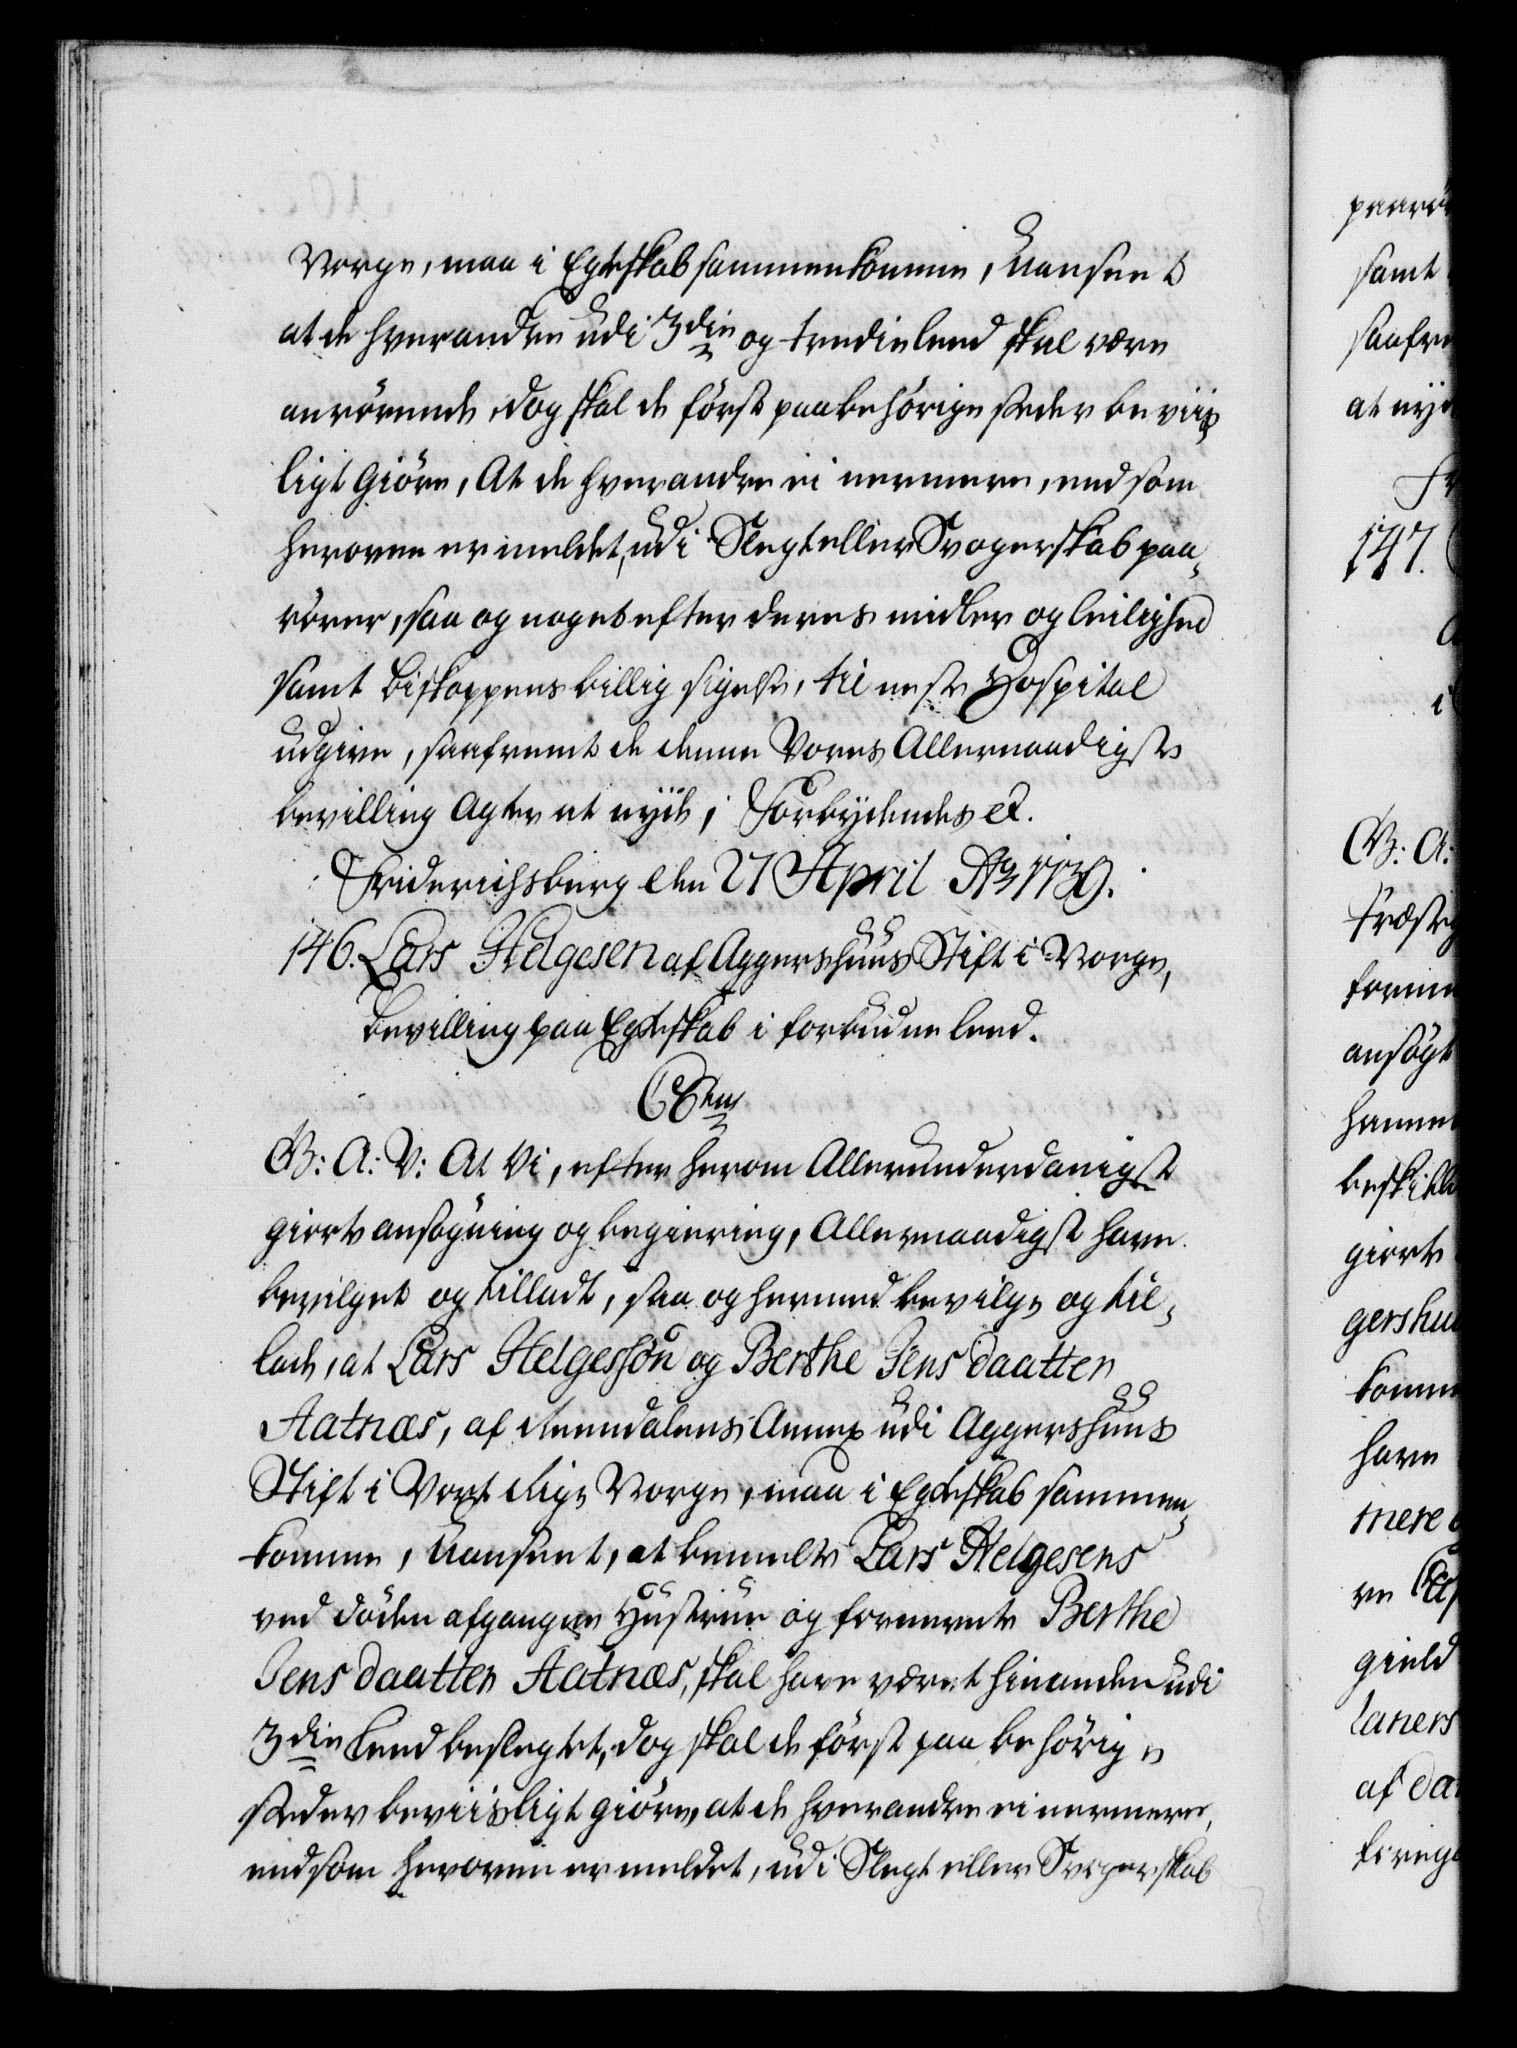 Norge, maa i Egteskab sammenkomme, Uanseet
at de hverandre udi 3die og tredie leed skal være
anrörende, dog skal de först paa behörige stæder beviis
ligt Giöre, At de hverandre ei nermere, end som
heroven er meldet, udi Slegt eller Svogerskab paa„
rörer, saa og noget efter deres midler og leilighed
samt biskoppens billig sigelse, til neste Hospital
udgive, saafremt de denne Vores Allernaadigste
bevilling Agter at nyde, Forbydendes etc.
Friderichsberg den 27 April Ao 1739.
146. Lars Helgesen af Aggershuus Stift i Norge,
bevilling paa Egteskab i forbudne leed.
C 6ten
G: A: V: At Vi, efter herom Allerunderdanigst
giorte ansøgning og begiering, Allernaadigst have
bevilget og tilladt, saa og hermed bevilge og til„
lade, at Lars Helgessön og Berthe Jens daatter
Aatnæs, af Annex udi Aggershuus
Stift i Vort Rige Norge, maa i Egteskab sammen„
komme, Uanseet, at bemelte Lars Helgesens
ved döden afgangne Hustrue og formente Berthe
Jens daatter Aatnæs, skal have været hinanden udi
3die Leed beslegtet, dog skal de först paa behörige
stæder beviisligt giöre, at de hverandre ei nermere,
end som heroven er meldet, udi Slegt eller Svogerskab
paarö
samt
saafre
at nyd
Fr
147.
i
G: A:
Præste
formed
ansögt
hannem
giorte
gershuu
komme
have
mere
gield
laners
af da